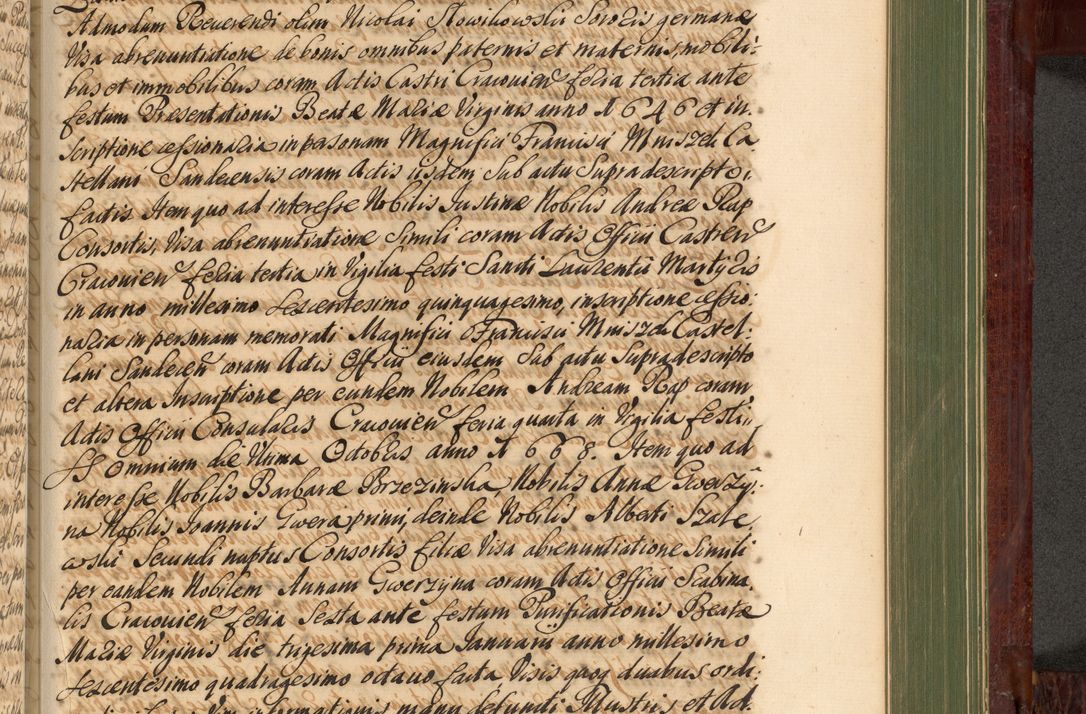 Admodum Reverendi olim Nicolai Słowikowski Sororis germanæ
Visa abrenuntiatione de bonis omnibus paternis et maternis, mobili-
bus et immobilibus coram Actis Castri Cracovien feria tertia ante
festum Præsentationis Beatæ Mariæ Virginis anno 1646 et in-
scriptione cessionaria in personam Magnifici Francisci Mniszek Ca
stellani Sandecensis coram Actis iisdem, Sub actu Supradescripto,
factis Item quo ad interesse Nobilis Justinæ Nobilis Andreæ Rap
Consortis, Visa abrenuntiatione Simili coram Actis Officii Castren
Cracovien feria tertia in Vigilia festi Sancti Laurentii Martyris
in anno millesimo sexcentesimo quinquagesimo, inscriptione cessio-
naria in personam memorati Magnifici Francisci Mniszek Castel-
lani Sandecen coram Actis Officii eiusdem Sub actu Supradescripto
et altera Inscriptione per eundem Nobilem Andream Rap coram
Actis Officii Consularis Cracovien feria quarta in Vigilia festi
SS Omnium die Ultima Octobris anno 1668. Item quo ad
interesse Nobilis Barbaræ Brzezinska, Nobilis Annæ Gwerzy-
na Nobilis Joannis Gwera primi, deinde Nobilis Alberti Szale
wski Secundi nuptus Consortis filiæ Visa abrenuntiatione Simili
per eandem Nobilem Annam Gwerzyna coram Actis Officii Scabina
lis Cracovien feria Sexta ante festum Purificationis Beatæ
Mariæ Virginis die trigesima prima Januarii anno millesimo
sexcentesimo quadragesimo octavo facta, Visis quoq duabus ordi-
manu defuncti Illustris, et Ad-